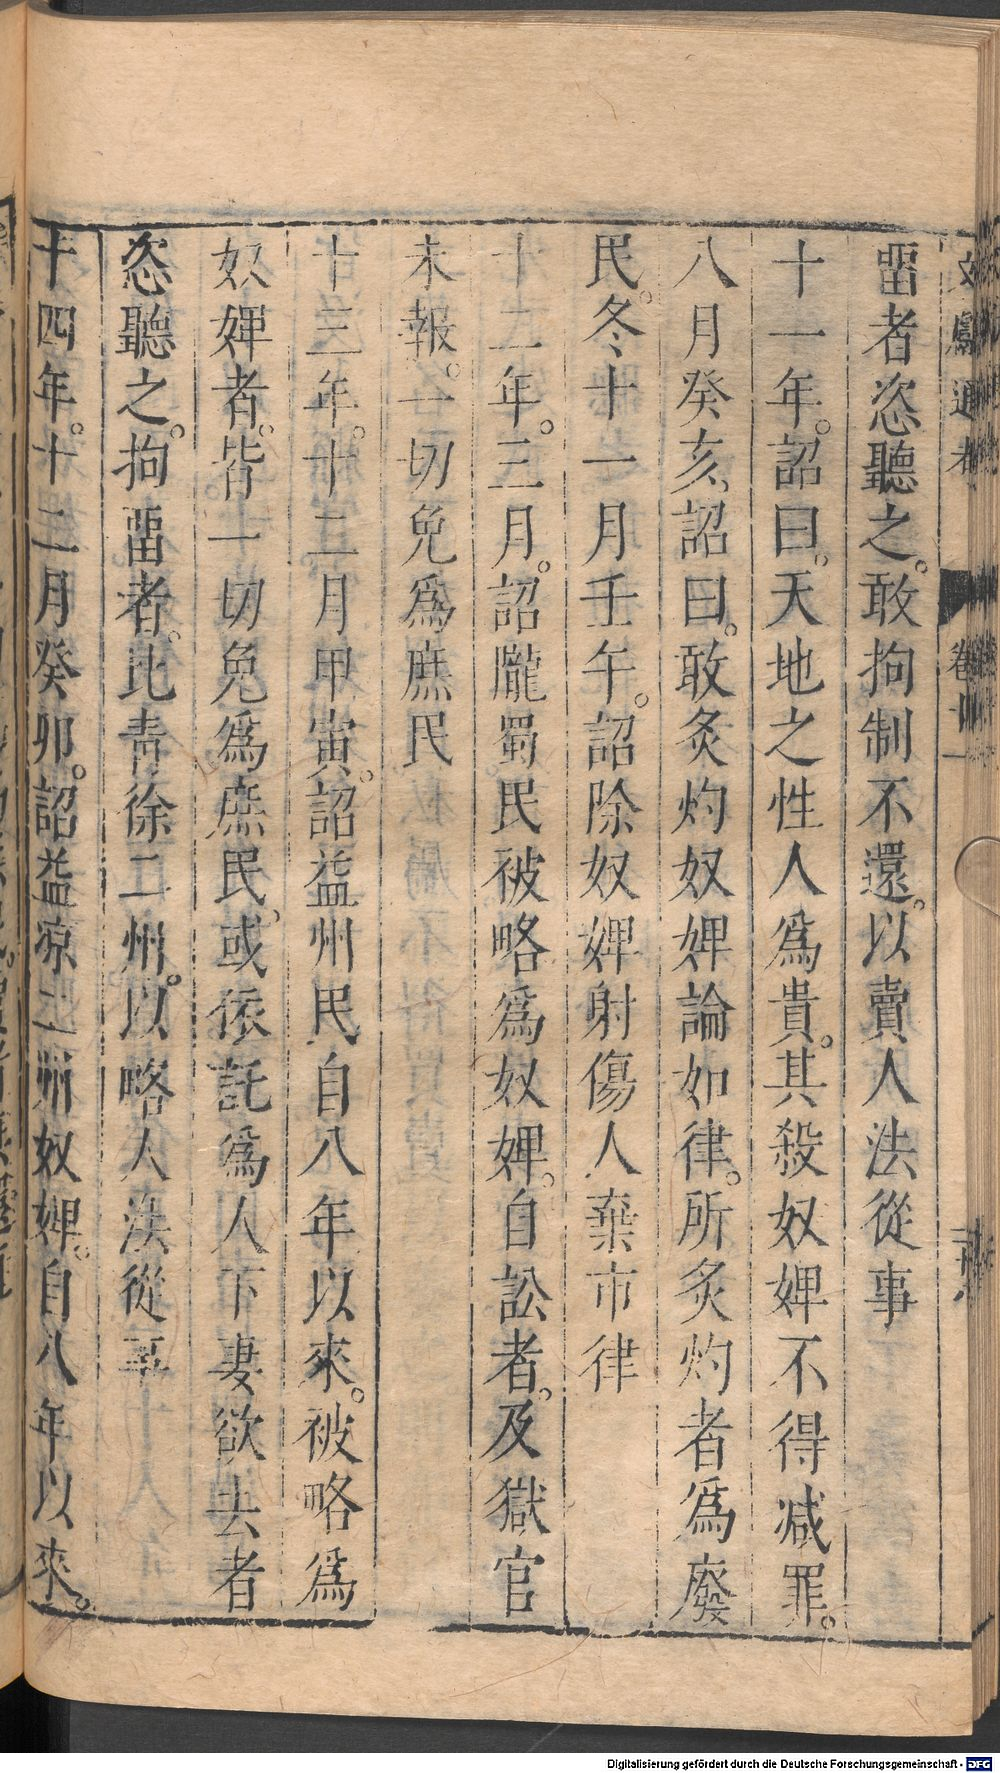 畱者恣聽之。敢拘制不還。以賣人法從事
十一年。詔曰。天地之性人爲貴。其殺奴婢不得減罪。
八月癸亥、詔曰。敢炙灼奴婢論如律。所炙灼者爲廢
民。冬十一月壬午。詔除奴婢射傷人棄市律
十二年。三月。詔隴蜀民被略爲奴婢。自訟者。及獄官
未報。一切免爲庶民
十三年。十二月甲寅。詔益州民自八年以來。被略爲
奴婢者。皆一切免爲庶民、或依託爲人下妻欲去者
恣聽之。拘畱者。比靑徐二州。以略人法從事
十四年。十二月癸卯。詔益凉二州奴婢。自八年以來。
文獻通考 卷十一
Digitalisierung gefördert durch die Deutsche Forschungsgemeinschaft - DFG